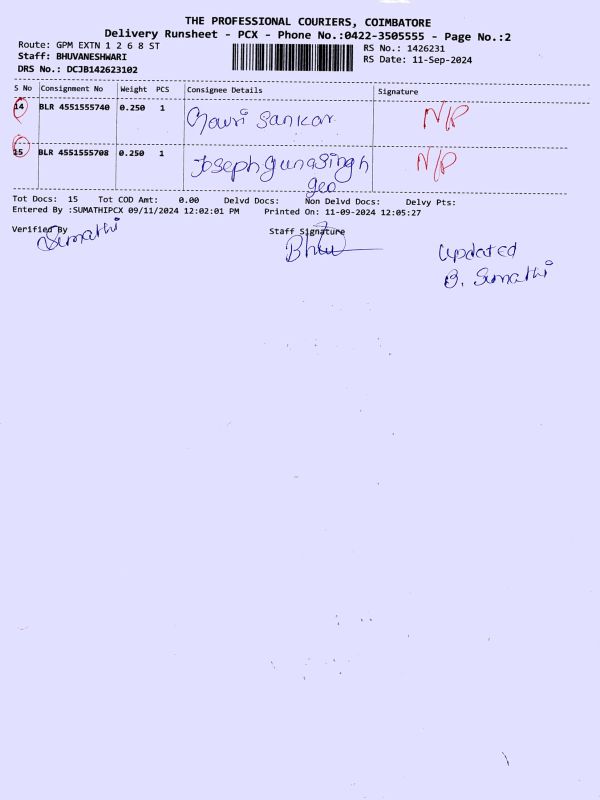 THE PROFESSIONAL COURIERS, COIMBATORE
Delivery Runsheet - PCX - Phone No.:0422-3505555 - Page No.:2
Route: GPM EXTN 1 2 6 8 ST
RS No.: 1426231
Staff: BHUVANESHWARI
RS Date: 11-Sep-2024
DRS No.: DCJB142623102
S No Consignment No Weight PCS Consignee Details Signature
14 BLR 4551555740 0.250 1 Gowri Sankar N/P
15 BLR 4551555708 0.250 1 Joseph gunasingh N/P
geo
Tot Docs: 15 Tot COD Amt: 0.00 Delvd Docs: Non Delvd Docs: Delvy Pts:
Entered By :SUMATHIPCX 09/11/2024 12:02:01 PM Printed On: 11-09-2024 12:05:27
Verified By Staff Signature
Sumathi Bhu Updated
B. Sumathi